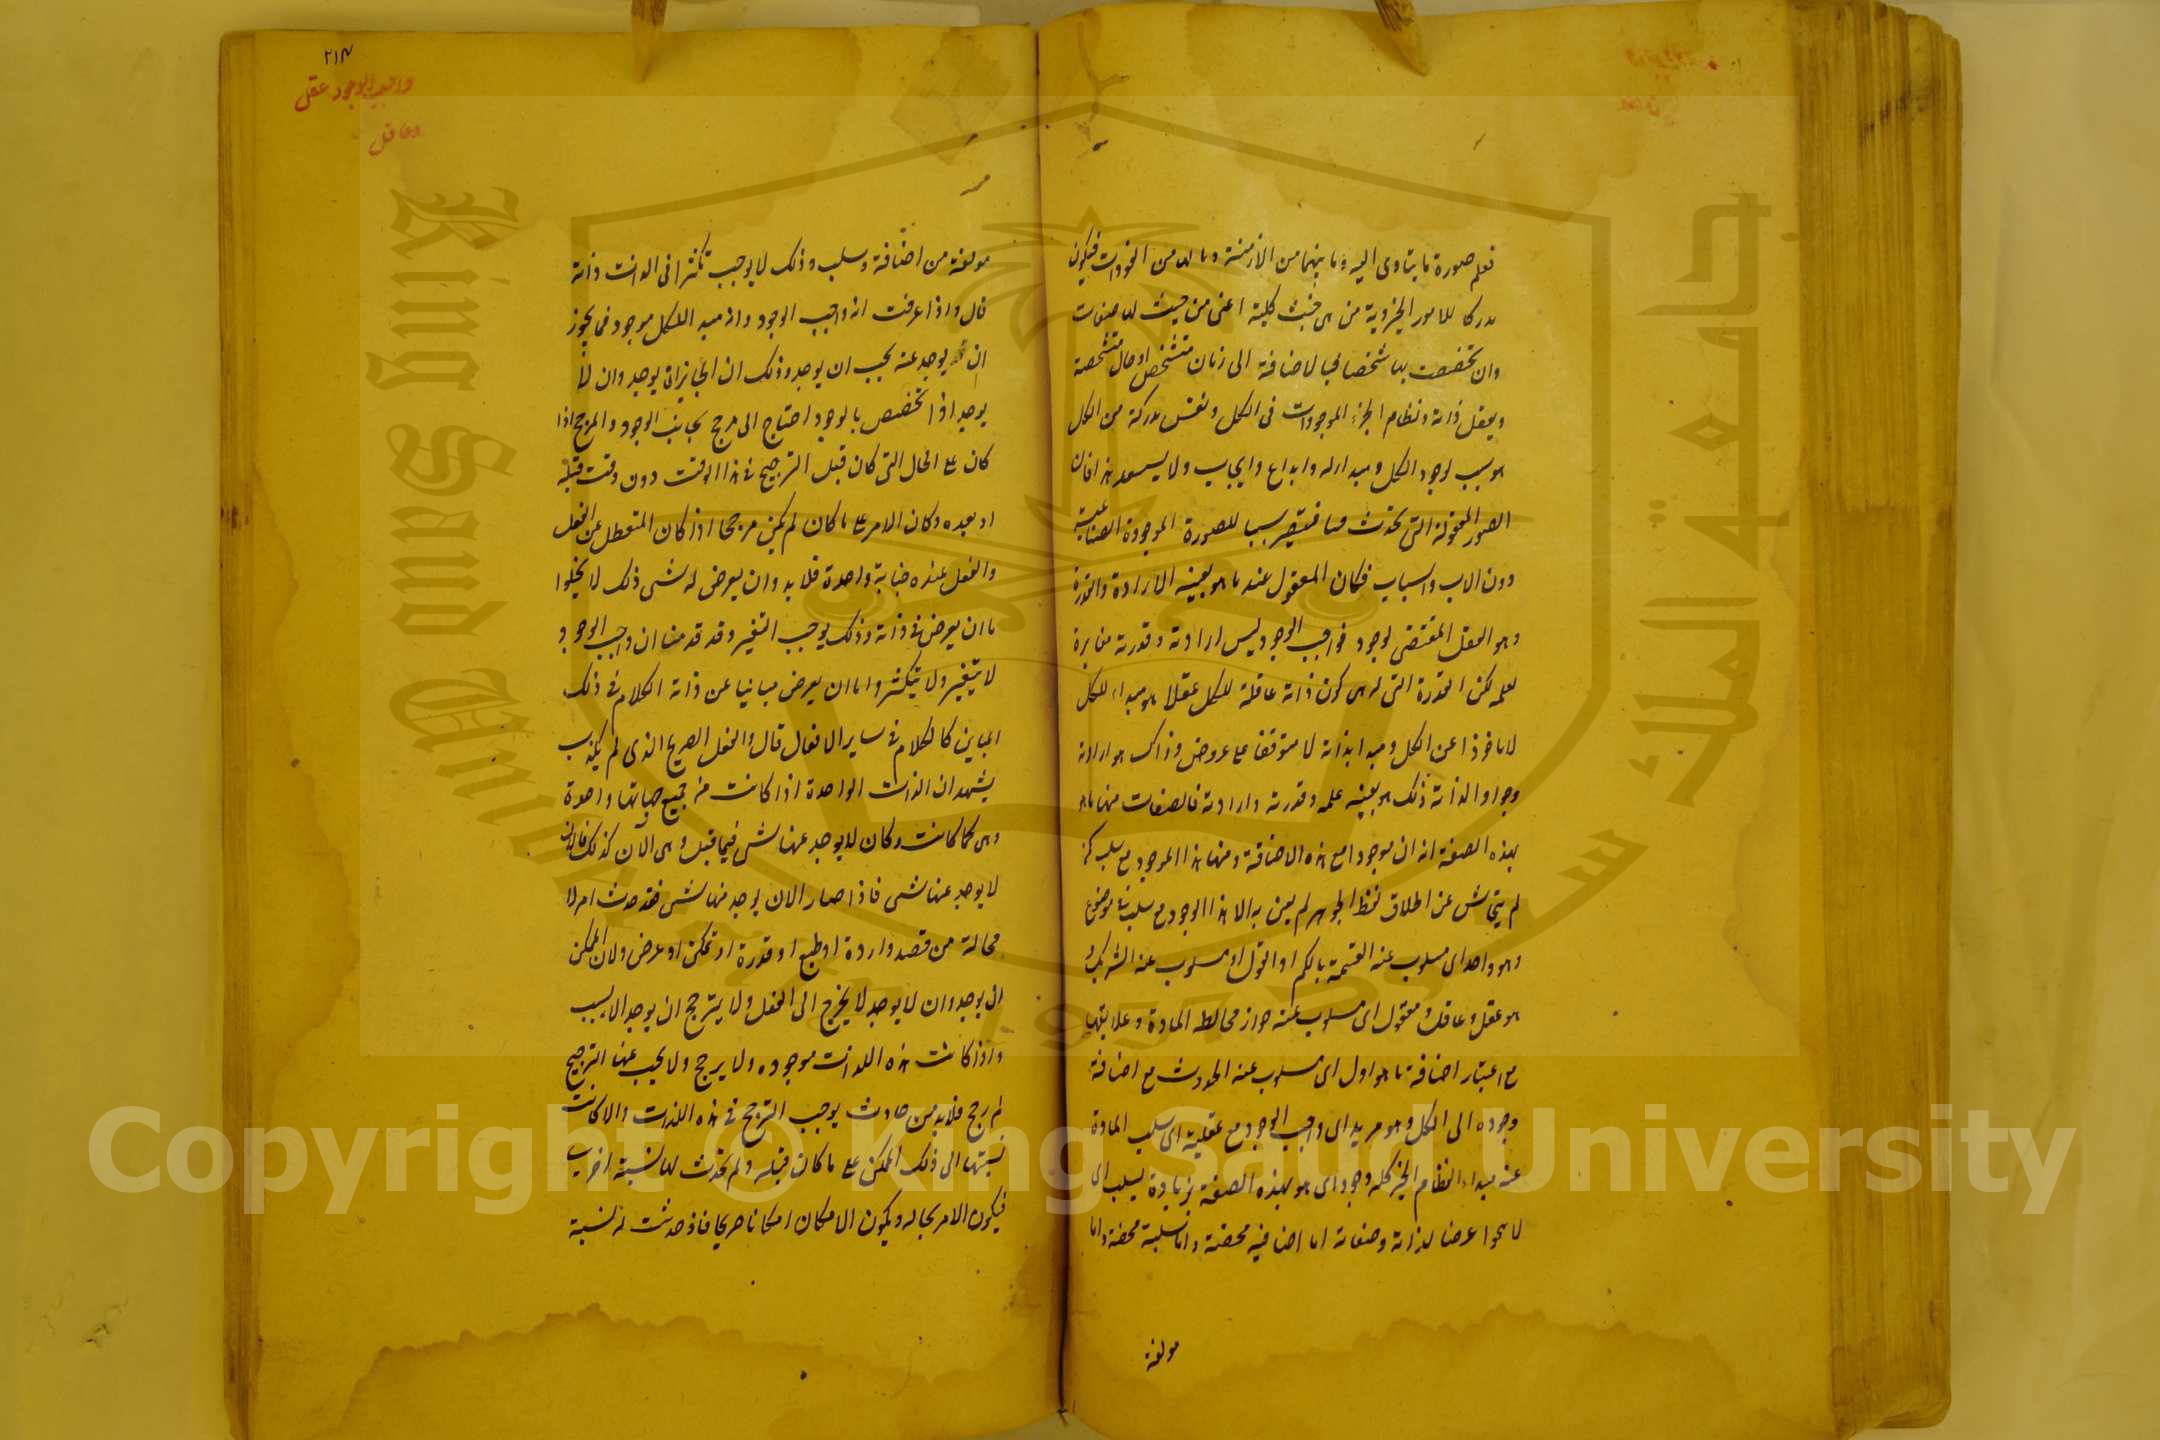 فعلم صورة ما يتاوى اليه وما بينهما من الازمنة وما لها من العودات فيكون
مدركا للامور الجزوية من هى حيث كلية اعنى من حيث لها صفات
وان تخصصت بها شخصا فبالاضافة الى زمان متشخص او حال متشخصة
ويعقل ذاته ونظام الخير الموجودات فى الكل ونفس مدركه من الكل
هو سبب لوجود الكل ومبدا له وابداع وايجاب ولا يستبعد هذا فان
الصور المعقولة التى تحدث فينا فتصير سببا للصورة الموجودة الصناعية
دون الات واسباب فكان المعقول عنده ما هو بعينه الارادة والقدرة
وهو العقل المقتضى لوجود فواجب الوجود ليس ارادته وقدرته مغايرة
لعلمه لكن القدرة التى له هى كون ذاته عاقلة للكل عقلا هو مبداء للكل
لا ماخوذا عن الكل ومبدا بذاته لا متوقفا على عروض وذاك هو ارادته
وجوادا لذاته ذلك هو بعينه علمه وقدرته وارادته فالصفات منها ما هو
بهذه الصفة انه ان موجودا مع هذه الاضافة ومنها هذا الموجود مع سلب كمن
لم يتحاش عن اطلاق لفظ الجوهر لم يعن به الا هذا الوجود مع سلب كونه فى موضوع
وهو واحد اى مسلوب عنه القسمة بالكم او القول او مسلوب عنه الشريك و
هو عقل وعاقل ومعقول اى مسلوب عنه جواز مخالطه المادة وعلايقها
مع اعتبار اضافة ما هو اول اى مسلوب عنه الحدوث مع اضافة
وجوده الى الكل وهو مريد اى واجب الوجود مع عقلية اى سلب المادة
عنه مبداء النظام الخير كله وجواد اى هو بهذه الصفة بزيادة سلب اى
لا ينحوا عرضا لذاته وصفاته اما اضافيه محضة واما سلبية محضة واما
مولفة
٢١٨
واجب الوجود عقل
وعاقل
مولفة من اضافة وسلب وذلك لا يوجب تكثرا فى الذات ذاته
قال واذا عرفت انه واجب الوجود وانه مبدا لكل موجود فما يجوز
ان يوجد عنه يجب ان يوجد وذلك ان الجايز ان يوجد وان لا
يوجد اذا تخصص بالوجود احتاج الى مرجح لجانب الوجود والمرجح اذا
كان على الحال التى كان قبل الترجيح فى هذا الوقت دون وقت قبله
او بعده وكان الامر على ما كان لم يكن مرجحا اذا كان المتعطل عن الفعل
والفعل عنده بمثابة واحدة فلا بد وان يعرض له شى ذلك لا يخلوا
ما ان يعرض فى ذاته وذلك يوجب التغير وقد قدمنا ان واجب الوجود
لا يتغير ولا يتكثر واما ان يعرض مباينا عن ذاته الكلام فى ذلك
المباين كالكلام فى ساير الافعال قال والعقل الصريح الذى لم يكذب
يشهد ان الذات الواحدة اذا كانت من جميع جهاتها واحدة
وهى كما كانت وكان لا يوجد عنها شى فيما قبل وهى الآن كذلك فالان
لا يوجد عنها شى فاذا صار الان يوجد منها شى فقد حدث امر لا
محالة من قصد وارادة او طبع او قدرة او تمكن او عرض ولان الممكن
ان يوجد وان لا يوجد لا يخرج الى الفعل ولا يترجح ان يوجد الا بسبب
واذا كانت هذه الذات موجوده ولا يرجح ولا يجب عنها الترجيح
ثم رجح فلا بد من حادث يوجب الترجح فى هذه الذات والا كانت
نسبتها الى ذلك الممكن على ما كان قبله ولم تحدث لها نسبة اخرى
فيكون الامر بحاله ويكون الامكان امكانا صريحا فاذ حدثت له نسبة
Copyright © King Saud University
King Saud University
جامعة الملك سعود
1957